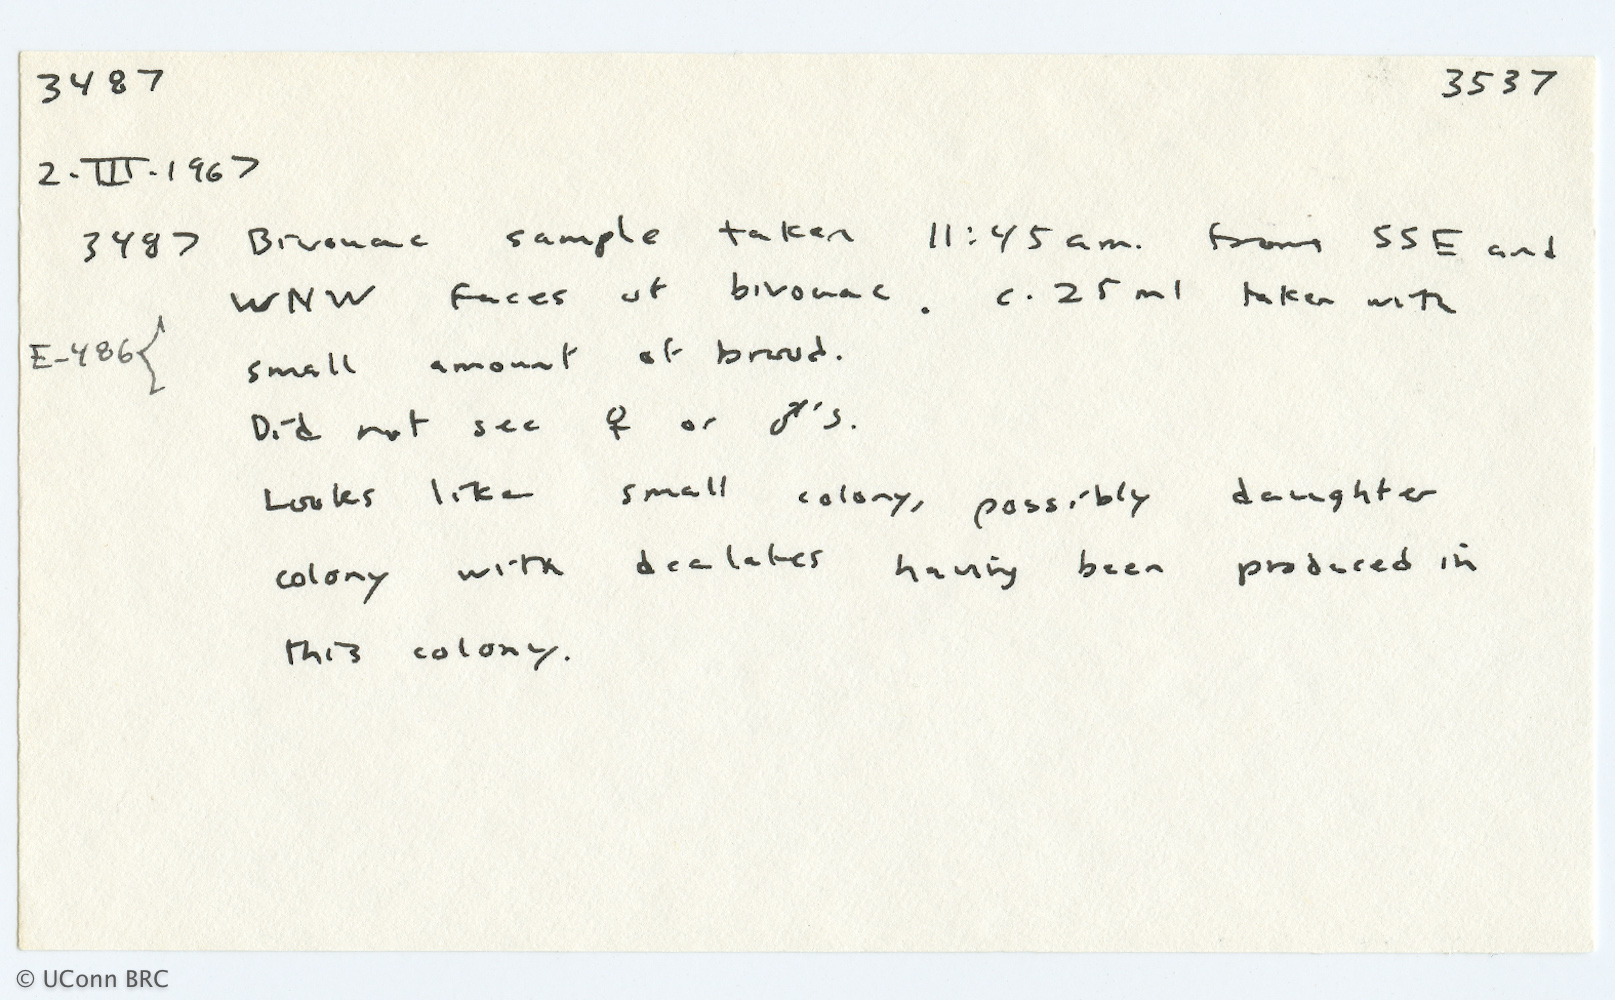 3487 3537
2-III-1967
3487 Bivouac sample taken 11:45 am. from SSE and
WNW faces of bivouac. c. 25 ml taken with
E-486{ small amount of brood.
Did not see ♀ or ♂'s.
Looks like small colony, possibly daughter
colony with dealates having been produced in
this colony.
© UConn BRC